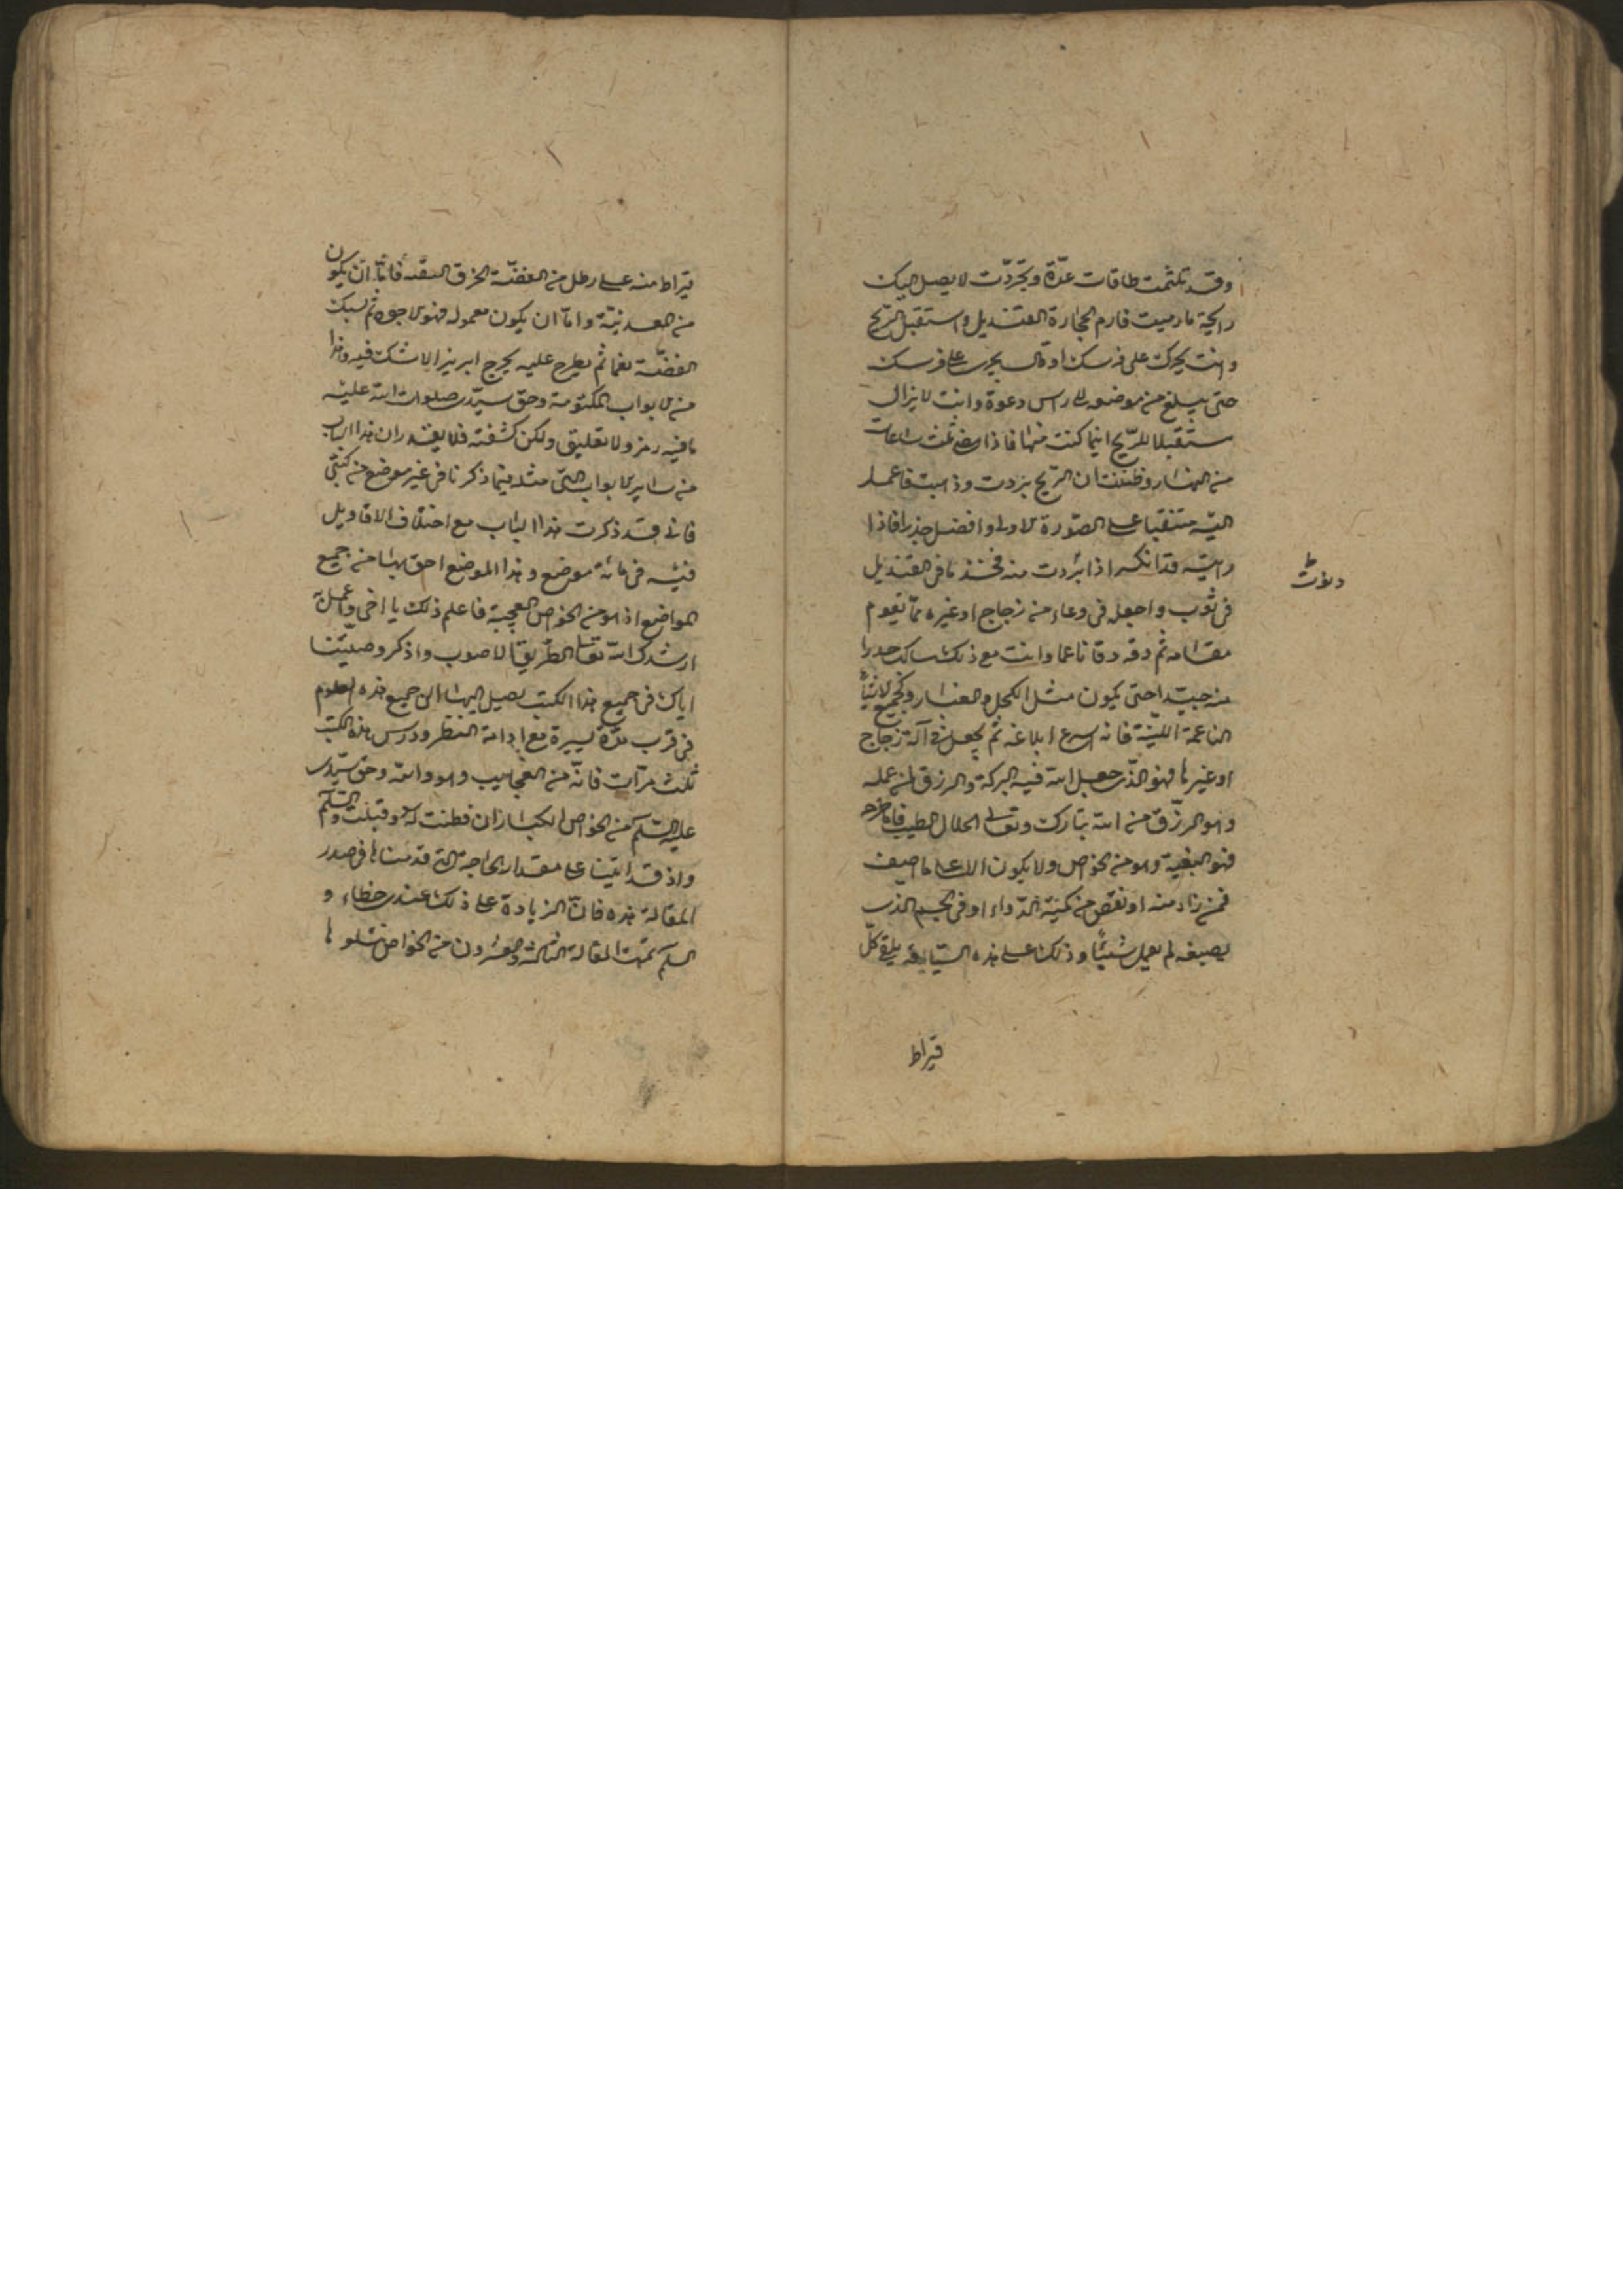 وقد تلثمت طاقات عدّة وتجرّدت لا يصل اليك
رايحة ما رميت فارم الحجارة القنديل واستقبل الريح
وانت يحرك على فرسك او يجرى على فرسك
حتى يبلغ من موضعه الى راس دعوة وانت لا يزال
مستقبلا للريح اينما كنت منها فاذا مضى ثلث ساعات
من النهار وظننت ان الريح بردت وذهبت فاعمل
اليه متنقبا على الصورة الاولى وافضل حذرا فاذا
رايته قد انكسر اذا بردت منه فخذ ما فى القنديل
فى ثوب واجعله فى وعاء من زجاج او غيره مما يقوم
مقامه ثم دقه دقا ناعما وانت مع ذلك حذرا
منه جيدا حتى يكون مثل الكحل والغبار
الناعمة اللينة فانه اسرع ابلاغه ثم يجعل فى آلة زجاج
او غيرها فهو الذى جعل الله فيه البركة والرزق لمن عمله
وهو الرزق من الله تبارك وتعالى الحلال الطيب
فهو البغية وهو من الخواص ولا يكون الا على ما اصف
فمن زاد منه او نقص من كمية الدواء او فى الجسم الذى
يصبغه لم يعمل شيئا وذلك على هذه السياقة يلقى كل
قيراط
قيراط منه على رطل من الفضة فاما ان يكون
من المعدنية واما ان يكون معموله فهو الاجود ثم يسبك
الفضة نعما ثم يطرح عليه يخرج ابريز الا شك فيه وهذا
من الابواب المكتومة وحق سيدى صلوات الله عليه
ما فيه رمز ولا تعليق ولكن كشفته فلا يقدر ان هذا الباب
من ساير الابواب التى مثله فيما ذكرنا فى غير موضع من كتبى
فانى قد ذكرت هذا الباب مع اختلاف الاقاويل
فيه فى مائة موضع وهذا الموضع احق بها من جميع
المواضع اذ هو من الخواص العجيبة فاعلم ذلك يا اخى واعمل به
ارشدك الله تعالى الطريق الاصوب واذكر وصيتنا
اياك فى جميع هذا الكتب يصل بها الى جميع هذه العلوم
فى قرب مدة يسيرة مع ادامة النظر ودرس هذه الكتب
ثلث مرات فانه من العجايب وهو والله وحق سيدى
عليه السلم من الخواص الكبار ان فطنت له وقبلت والسلم
واذ قد اتينا على مقدار الحاجة التى قدمناها فى صدر
المقالة هذه فان الزيادة على ذلك عندى خطاء و
السلم تمت المقالة الثالثة والعشرون من الخواص يتلوها